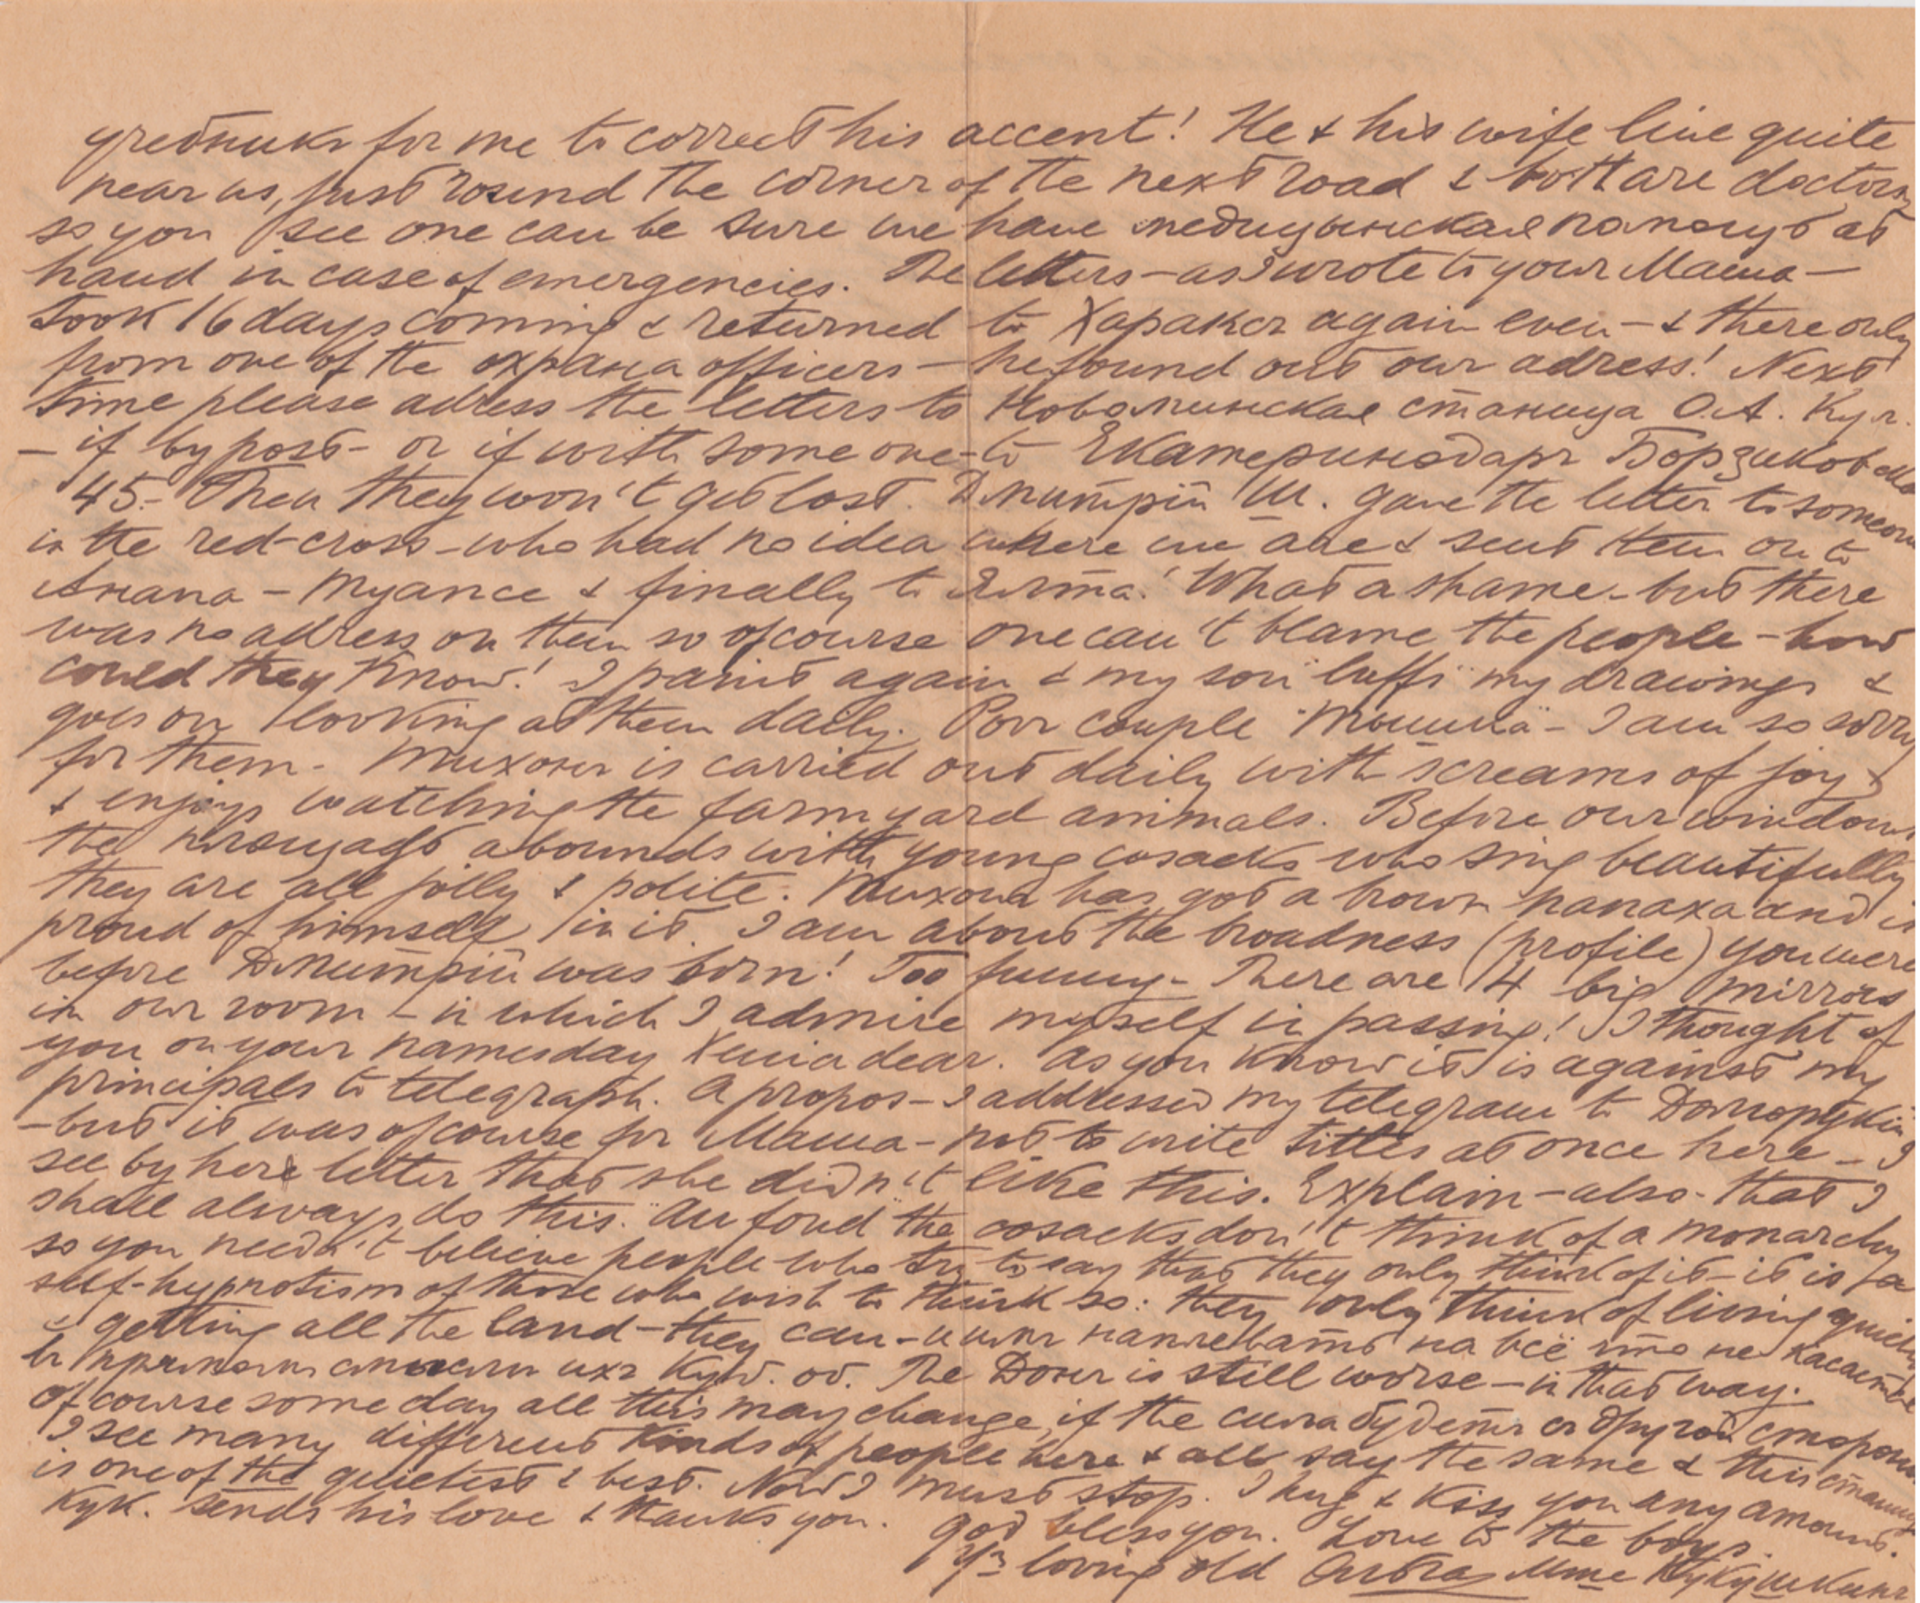 учебникъ for me to correct his accent! He & his wife live quite
near us, just round the corner of the next road & both are doctors,
so you see one can be sure we have медицынская помощь at
hand in case of emergencies. The letters – as I wrote to your Mama –
took 16 days coming & returned to Харакъ again even – & there only
from one of the охрана officers – he found out our adress! Next
time please adress the letters to Новоминская станица О.А. Кул.
– if by post – or if with some one – to Екатеринодаръ Борзиковская
45. – Then they won't get lost. Дмитрій Ш. gave the letter to someone
in the red-cross – who had no idea where we are & sent them on to
Анапа – Туапсе & finally to Ялта! What a shame – but there
was no adress on them so of course one can't blame the people – how
could they know! I paint again & my son "luffs" my drawings &
goes on looking at them daily. Poor couple – I am so sorry
for them. – Тихонъ is carried out daily with screams of joy
& enjoys watching the farmyard animals. Before our windows
the площадь abounds with young cosacks who sing beautifully
they are all jolly & polite. Тихонъ has got a brown папаха and is
proud of himself in it. I am about the broadness (profile) you were
before Дмитрій was born! Too funny – There are 4 big mirrors
in our room – in which I admire myself in passing! I thought of
you on your namesday Xenia dear. As you know it is against my
principals to telegraph. A propos – I addressed my telegram to
– but it was of course for Mama – not to write titles at once here – I
see by here letter that she didn't like this. Explain – also – that I
shall always do this. Au fond the cosacks don't think of a monarchy
so you needn't believe people who try to say that they only think of it – it is a
self-hypnotism of those who wish to think so: they only think of living quietly
& getting all the land – they can – имъ наплевать на всё что не касается
ихъ Куб. об. The Донъ is still worse – in that way.
Of course some day all this may change, if the сила будетъ съ другой стороны
I see many different kinds of people here & all say the same & this станица
is one of the quietest & best. Now I must stop. I hug & kiss you any amount.
Кук. sends his love & thanks you. God bless you. Love to the boys.
Yr loving old Ольга Mme Кукушкинъ